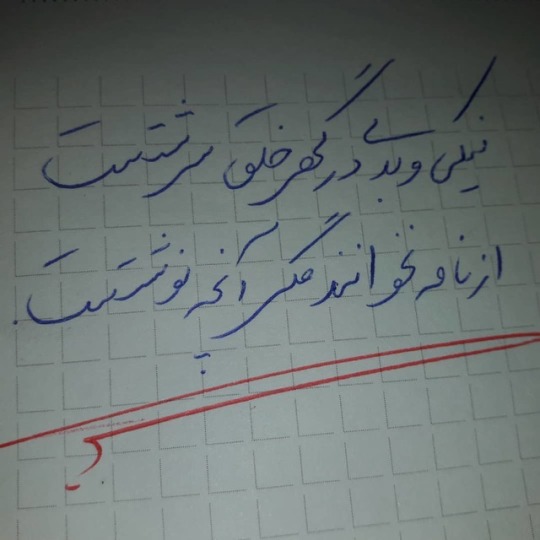 نیکی و بدی در گهر خلق سرشتست
از نامه نخوانند مگر آنچه نوشتست.